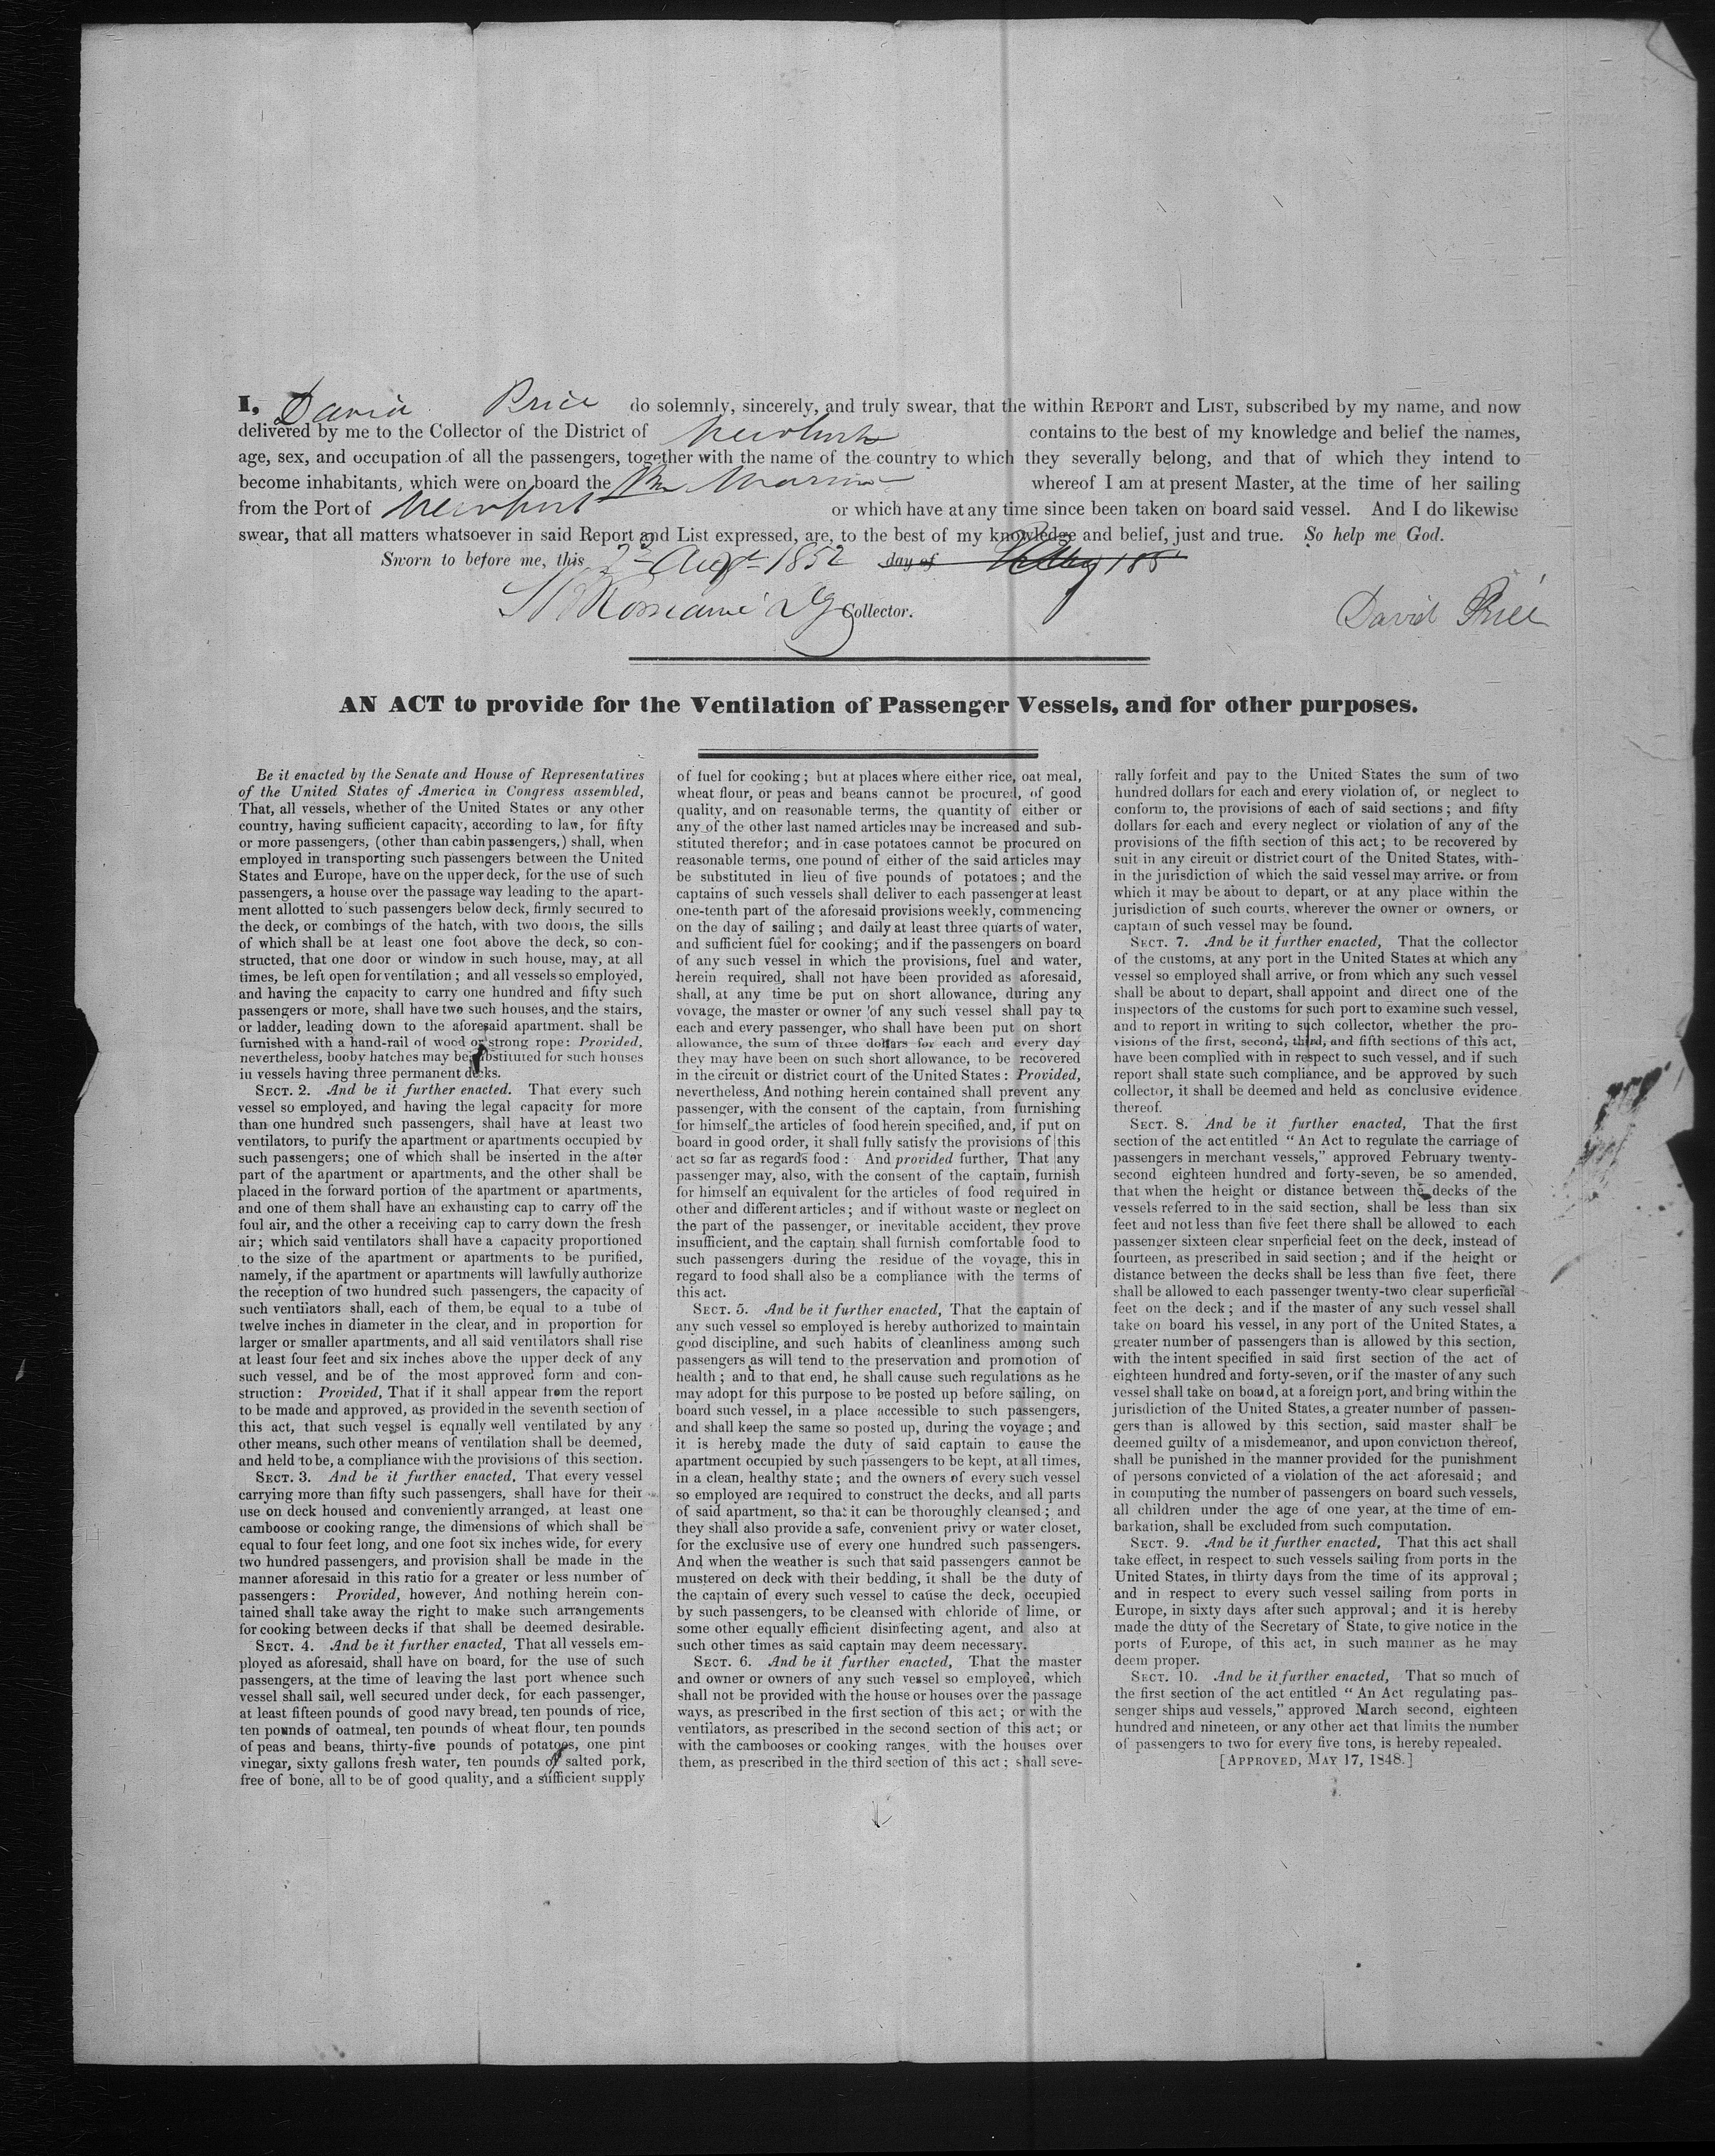 I, David Price do solemnly, sincerely, and truly swear, that the within REPORT and LIST, subscribed by my name, and now
delivered by me to the Collector of the District of contains to the best of my knowledge and belief the names,
age, sex, and occupation of all the passengers, together with the name of the country to which they severally belong, and that of which they intend to
become inhabitants, which were on board the whereof I am at present Master, at the time of her sailing
from the Port of Newport or which have at any time since been taken on board said vessel. And I do likewise
swear, that all matters whatsoever in said Report and List expressed, are, to the best of my knowledge and belief, just and true. So help me God.
Sworn to before me, this Augt 1852 day of
Collector.
David Price
AN ACT to provide for the Ventilation of Passenger Vessels, and for other purposes.
Be it enacted by the Senate and House of Representatives
of the United States of America in Congress assembled,
That, all vessels, whether of the United States or any other
country, having sufficient capacity, according to law, for fifty
or more passengers, (other than cabin passengers,) shall, when
employed in transporting such passengers between the United
States and Europe, have on the upper deck, for the use of such
passengers, a house over the passage way leading to the apart-
ment allotted to such passengers below deck, firmly secured to
the deck, or combings of the hatch, with two doors, the sills
of which shall be at least one foot above the deck, so con-
structed, that one door or window in such house, may, at all
times, be left open for ventilation; and all vessels so employed,
and having the capacity to carry one hundred and fifty such
passengers or more, shall have two such houses, and the stairs,
or ladder, leading down to the aforesaid apartment. shall be
furnished with a hand-rail of wood or strong rope: Provided,
nevertheless, booby hatches may be substituted for such houses
in vessels having three permanent decks.
SECT. 2. And be it further enacted. That every such
vessel so employed, and having the legal capacity for more
than one hundred such passengers, shall have at least two
ventilators, to purify the apartment or apartments occupied by
such passengers; one of which shall be inserted in the after
part of the apartment or apartments, and the other shall be
placed in the forward portion of the apartment or apartments,
and one of them shall have an exhausting cap to carry off the
foul air, and the other a receiving cap to carry down the fresh
air; which said ventilators shall have a capacity proportioned
to the size of the apartment or apartments to be purified,
namely, if the apartment or apartments will lawfully authorize
the reception of two hundred such passengers, the capacity of
such ventilators shall, each of them, be equal to a tube of
twelve inches in diameter in the clear, and in proportion for
larger or smaller apartments, and all said ventilators shall rise
at least four feet and six inches above the upper deck of any
such vessel, and be of the most approved form and con-
struction: Provided, That if it shall appear from the report
to be made and approved, as provided in the seventh section of
this act, that such vessel is equally well ventilated by any
other means, such other means of ventilation shall be deemed,
and held to be, a compliance with the provisions of this section.
SECT. 3. And be it further enacted, That every vessel
carrying more than fifty such passengers, shall have for their
use on deck housed and conveniently arranged, at least one
camboose or cooking range, the dimensions of which shall be
equal to four feet long, and one foot six inches wide, for every
two hundred passengers, and provision shall be made in the
manner aforesaid in this ratio for a greater or less number of
passengers: Provided, however, And nothing herein con-
tained shall take away the right to make such arrangements
for cooking between decks if that shall be deemed desirable.
SECT. 4. And be it further enacted, That all vessels em-
ployed as aforesaid, shall have on board, for the use of such
passengers, at the time of leaving the last port whence such
vessel shall sail, well secured under deck, for each passenger,
at least fifteen pounds of good navy bread, ten pounds of rice,
ten pounds of oatmeal, ten pounds of wheat flour, ten pounds
of peas and beans, thirty-five pounds of potatoes, one pint
vinegar, sixty gallons fresh water, ten pounds of salted pork,
free of bone, all to be of good quality, and a sufficient supply
of fuel for cooking; but at places where either rice, oat meal,
wheat flour, or peas and beans cannot be procured, of good
quality, and on reasonable terms, the quantity of either or
any of the other last named articles may be increased and sub-
stituted therefor; and in case potatoes cannot be procured on
reasonable terms, one pound of either of the said articles may
be substituted in lieu of five pounds of potatoes; and the
captains of such vessels shall deliver to each passenger at least
one-tenth part of the aforesaid provisions weekly, commencing
on the day of sailing; and daily at least three quarts of water,
and sufficient fuel for cooking; and if the passengers on board
of any such vessel in which the provisions, fuel and water,
herein required, shall not have been provided as aforesaid,
shall, at any time be put on short allowance, during any
voyage, the master or owner of any such vessel shall pay to
each and every passenger, who shall have been put on short
allowance, the sum of three dollars for each and every day
they may have been on such short allowance, to be recovered
in the circuit or district court of the United States: Provided,
nevertheless, And nothing herein contained shall prevent any
passenger, with the consent of the captain, from furnishing
for himself the articles of food herein specified, and, if put on
board in good order, it shall fully satisfy the provisions of this
act so far as regards food: And provided further, That any
passenger may, also, with the consent of the captain, furnish
for himself an equivalent for the articles of food required in
other and different articles; and if without waste or neglect on
the part of the passenger, or inevitable accident, they prove
insufficient, and the captain shall furnish comfortable food to
such passengers during the residue of the voyage, this in
regard to food shall also be a compliance with the terms of
this act.
SECT. 5. And be it further enacted, That the captain of
any such vessel so employed is hereby authorized to maintain
good discipline, and such habits of cleanliness among such
passengers as will tend to the preservation and promotion of
health; and to that end, he shall cause such regulations as he
may adopt for this purpose to be posted up before sailing, on
board such vessel, in a place accessible to such passengers,
and shall keep the same so posted up, during the voyage; and
it is hereby made the duty of said captain to cause the
apartment occupied by such passengers to be kept, at all times,
in a clean, healthy state; and the owners of every such vessel
so employed are required to construct the decks, and all parts
of said apartment, so that it can be thoroughly cleansed; and
they shall also provide a safe, convenient privy or water closet,
for the exclusive use of every one hundred such passengers.
And when the weather is such that said passengers cannot be
mustered on deck with their bedding, it shall be the duty of
the captain of every such vessel to cause the deck, occupied
by such passengers, to be cleansed with chloride of lime, or
some other equally efficient disinfecting agent, and also at
such other times as said captain may deem necessary.
SECT. 6. And be it further enacted, That the master
and owner or owners of any such vessel so employed, which
shall not be provided with the house or houses over the passage
ways, as prescribed in the first section of this act; or with the
ventilators, as prescribed in the second section of this act; or
with the cambooses or cooking ranges, with the houses over
them, as prescribed in the third section of this act; shall seve-
rally forfeit and pay to the United States the sum of two
hundred dollars for each and every violation of, or neglect to
conform to, the provisions of each of said sections; and fifty
dollars for each and every neglect or violation of any of the
provisions of the fifth section of this act; to be recovered by
suit in any circuit or district court of the United States, with-
in the jurisdiction of which the said vessel may arrive. or from
which it may be about to depart, or at any place within the
jurisdiction of such courts, wherever the owner or owners, or
captain of such vessel may be found.
SECT. 7. And be it further enacted, That the collector
of the customs, at any port in the United States at which any
vessel so employed shall arrive, or from which any such vessel
shall be about to depart, shall appoint and direct one of the
inspectors of the customs for such port to examine such vessel,
and to report in writing to such collector, whether the pro-
visions of the first, second, third, and fifth sections of this act,
have been complied with in respect to such vessel, and if such
report shall state such compliance, and be approved by such
collector, it shall be deemed and held as conclusive evidence
thereof.
SECT. 8. And be it further enacted, That the first
section of the act entitled “An Act to regulate the carriage of
passengers in merchant vessels,” approved February twenty-
second eighteen hundred and forty-seven, be so amended,
that when the height or distance between the decks of the
vessels referred to in the said section, shall be less than six
feet and not less than five feet there shall be allowed to each
passenger sixteen clear superficial feet on the deck, instead of
fourteen, as prescribed in said section; and if the height or
distance between the decks shall be less than five feet, there
shall be allowed to each passenger twenty-two clear superficial
feet on the deck; and if the master of any such vessel shall
take on board his vessel, in any port of the United States, a
greater number of passengers than is allowed by this section,
with the intent specified in said first section of the act of
eighteen hundred and forty-seven, or if the master of any such
vessel shall take on board, at a foreign port, and bring within the
jurisdiction of the United States, a greater number of passen-
gers than is allowed by this section, said master shall be
deemed guilty of a misdemeanor, and upon conviction thereof,
shall be punished in the manner provided for the punishment
of persons convicted of a violation of the act aforesaid; and
in computing the number of passengers on board such vessels,
all children under the age of one year, at the time of em-
barkation, shall be excluded from such computation.
SECT. 9. And be it further enacted, That this act shall
take effect, in respect to such vessels sailing from ports in the
United States, in thirty days from the time of its approval;
and in respect to every such vessel sailing from ports in
Europe, in sixty days after such approval; and it is hereby
made the duty of the Secretary of State, to give notice in the
ports of Europe, of this act, in such manner as he may
deem proper.
SECT. 10. And be it further enacted, That so much of
the first section of the act entitled “An Act regulating pas-
senger ships and vessels,” approved March second, eighteen
hundred and nineteen, or any other act that limits the number
of passengers to two for every five tons, is hereby repealed.
[APPROVED, MAY 17, 1848.]